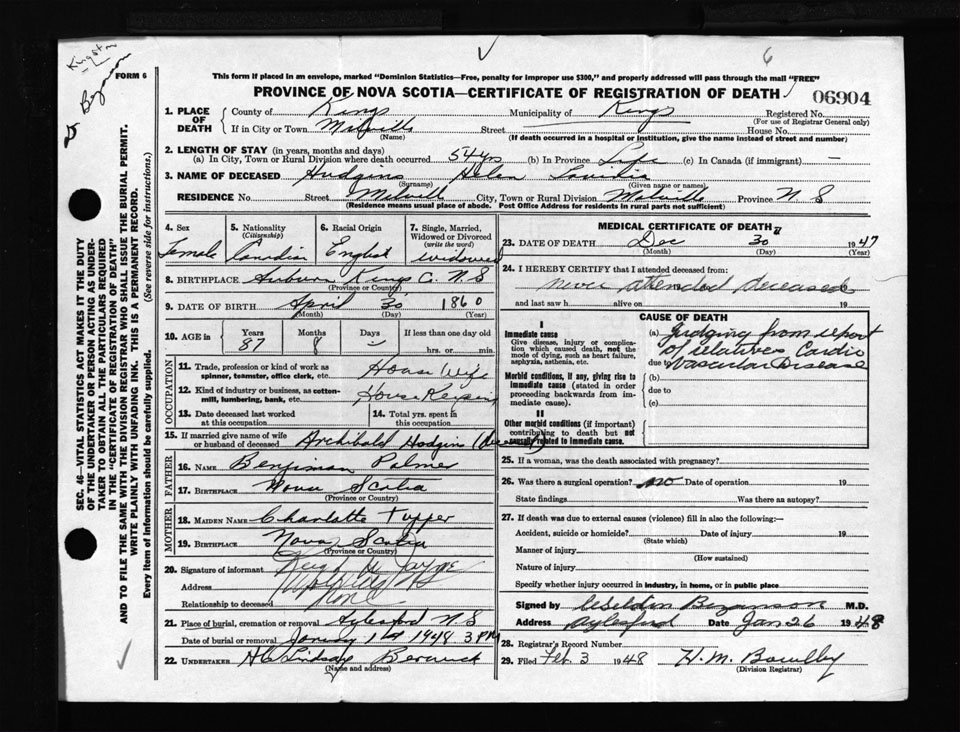 Kingston
Bezanson
FORM 6
6
This form if placed in an envelope, marked "Dominion Statistics—Free, penalty for improper use $300," and properly addressed will pass through the mail "FREE"
PROVINCE OF NOVA SCOTIA—CERTIFICATE OF REGISTRATION OF DEATH
06904
1. PLACE OF DEATH
County of Kings Municipality of Kings Registered No.
(For use of Registrar General only)
If in City or Town Melville Street House No.
(Name) (If death occurred in a hospital or institution, give the name instead of street and number)
2. LENGTH OF STAY (in years, months and days)
(a) In City, Town or Rural Division where death occurred 54 yrs (b) In Province Life (c) In Canada (if immigrant) —
3. NAME OF DECEASED Hudgins Helen
(Surname) (Given name or names)
RESIDENCE No. Street Melville City, Town or Rural Division Melville Province N S
(Residence means usual place of abode. Post Office Address for residents in rural parts not sufficient)
4. Sex Female
5. Nationality (Citizenship) Canadian
6. Racial Origin English
7. Single, Married, Widowed or Divorced (write the word) widowed
8. BIRTHPLACE Auburn Kings Co. N S
(Province or Country)
9. DATE OF BIRTH April 30 1860
(Month) (Day) (Year)
10. AGE in Years 87 Months 8 Days — If less than one day old hrs. or min.
OCCUPATION
11. Trade, profession or kind of work as spinner, teamster, office clerk, etc. House Wife
12. Kind of industry or business, as cotton-mill, lumbering, bank, etc. House Keeping
13. Date deceased last worked at this occupation
14. Total yrs. spent in this occupation
15. If married give name of wife or husband of deceased Archibald Hodgins (deceased)
FATHER
16. NAME Benjiman Palmer
17. BIRTHPLACE Nova Scotia
(Province or Country)
MOTHER
18. MAIDEN NAME Charlotte Tupper
19. BIRTHPLACE Nova Scotia
(Province or Country)
20. Signature of informant
Address
Relationship to deceased None
21. Place of burial, cremation or removal Aylesford N S
Date of burial or removal 1st 1948 3 PM
22. UNDERTAKER H C Lindsay Berwick
(Name and address)
MEDICAL CERTIFICATE OF DEATH
23. DATE OF DEATH Dec 30 1947
(Month) (Day) (Year)
24. I HEREBY CERTIFY that I attended deceased from:
never attended deceased
and last saw h alive on 19
CAUSE OF DEATH
I
Immediate cause
Give disease, injury or complication which caused death, not the mode of dying, such as heart failure, asphyxia, asthenia, etc.
(a) Judging from report
of relatives Cardio
due Vascular Disease
Morbid conditions, if any, giving rise to immediate cause (stated in order proceeding backwards from immediate cause).
(b)
due to
(c)
II
Other morbid conditions (if important) contributing to death but not causally related to immediate cause.
25. If a woman, was the death associated with pregnancy?
26. Was there a surgical operation? no Date of operation 19
State findings Was there an autopsy?
27. If death was due to external causes (violence) fill in also the following:—
Accident, suicide or homicide? Date of injury 19
(State which)
Manner of injury
(How sustained)
Nature of injury
Specify whether injury occurred in industry, in home, or in public place
Signed by Weldon Bezanson M.D.
Address Aylesford Date Jan 26 1948
28. Registrar's Record Number
29. Filed Feb. 3 1948 H. M. Bowlby
(Division Registrar)
SEC. 46—VITAL STATISTICS ACT MAKES IT THE DUTY
OF THE UNDERTAKER OR PERSON ACTING AS UNDER-
TAKER TO OBTAIN ALL THE PARTICULARS REQUIRED
IN THE "CERTIFICATE OF REGISTRATION OF DEATH"
AND TO FILE THE SAME WITH THE DIVISION REGISTRAR WHO SHALL ISSUE THE BURIAL PERMIT.
WRITE PLAINLY WITH UNFADING INK. THIS IS A PERMANENT RECORD.
Every item of information should be carefully supplied. (See reverse side for instructions.)